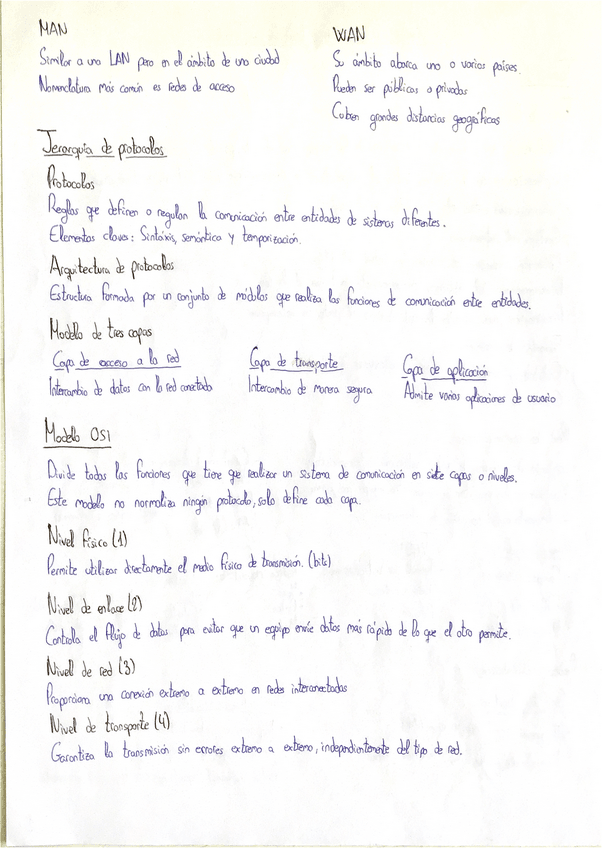 MAN
Similar a una LAN pero en el ámbito de una ciudad
Nomenclatura más común es redes de acceso
WAN
Su ámbito abarca uno o varios países.
Pueden ser públicas o privadas
Cubren grandes distancias geográficas
Jerarquía de protocolos
Protocolos
Reglas que definen o regulan la comunicación entre entidades de sistemas diferentes.
Elementos claves: Sintáxis, semántica y temporización.
Arquitectura de protocolos
Estructura formada por un conjunto de módulos que realiza las funciones de comunicación entre entidades.
Modelo de tres capas
Capa de acceso a la red
Intercambio de datos con la red conectada
Capa de transporte
Intercambio de manera segura
Capa de aplicación
Admite varias aplicaciones de usuario
Modelo OSI
Divide todas las funciones que tiene que realizar un sistema de comunicación en siete capas o niveles.
Este modelo no normaliza ningún protocolo, solo define cada capa.
Nivel físico (1)
Permite utilizar directamente el medio físico de transmisión. (bits)
Nivel de enlace (2)
Controla el flujo de datos para evitar que un equipo envíe datos más rápido de lo que el otro permite.
Nivel de red (3)
Proporciona una conexión extremo a extremo en redes interconectadas
Nivel de transporte (4)
Garantiza la transmisión sin errores extremo a extremo, independientemente del tipo de red.